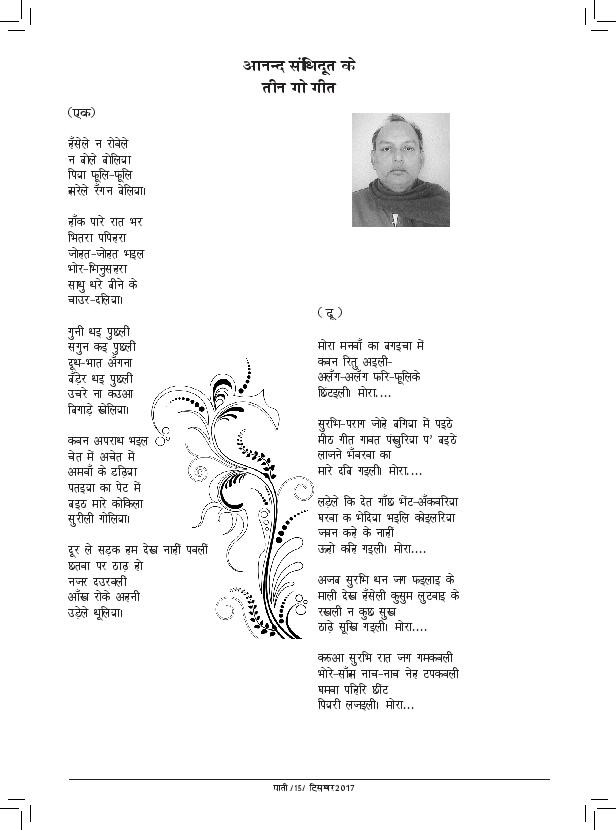 आनन्द संधिदूत के
तीन गो गीत
(एक)
हँसेले न रोवेले
न बोले बोलिया
पिया फूलि-फूलि
मरेले रँगन बेलिया।
हाँक पारे रात भर
भितरा पपिहरा
जोहत-जोहत भइल
भोर-भिनुसहरा
साधु थरे बीने के
चाउर-दलिया।
गुनी थइ पुछली
सगुन कइ पुछली
दूध-भात अँगना
बँड़ेर थइ पुछली
उचरे ना कउआ
बिगाड़े खेलिया।
कवन अपराध भइल
चेत में अचेत में
अमवाँ के ठढ़िया
पतइया का पेट में
बइठ मारे कोकिला
सुरीली गोलिया।
दूर ले सड़क हम देख नाहीं पवलीं
छतवा पर ठाढ़ हो
नजर दउरवली
आँख रोके अहनी
उड़ेले धूलिया।
( दू )
मोरा मनवाँ का बगइचा में
कवन रितु अइली-
अलँग-अलँग फरि-फूलिके
छिंटइली। मोरा....
सुरभि-पराग जोहे बगिया में पइठे
मीठ गीत गावत पंखुरिया प' बइठे
लाजने भँवरवा का
मारे दबि गइली। मोरा....
लड़ेले कि देत गाँछ भेंट-अँकवरिया
घरवा क भेदिया भइलि कोइलरिया
जवन कहे के नाहीं
ऊहो कहि गइली। मोरा....
अजब सुरभि धन जग फइलाइ के
माली देख हँसेली कुसुम लुटवाइ के
रखली न कुछ सुख
ठाढ़े सूखि गइली। मोरा....
करुआ सुरभि रात जग गमकवली
भोरे-साँस नाच-नाच नेह टपकवली
घमवा पहिरि छींट
पियरी लजइली। मोरा...
पाती /15/ दिसम्बर 2017